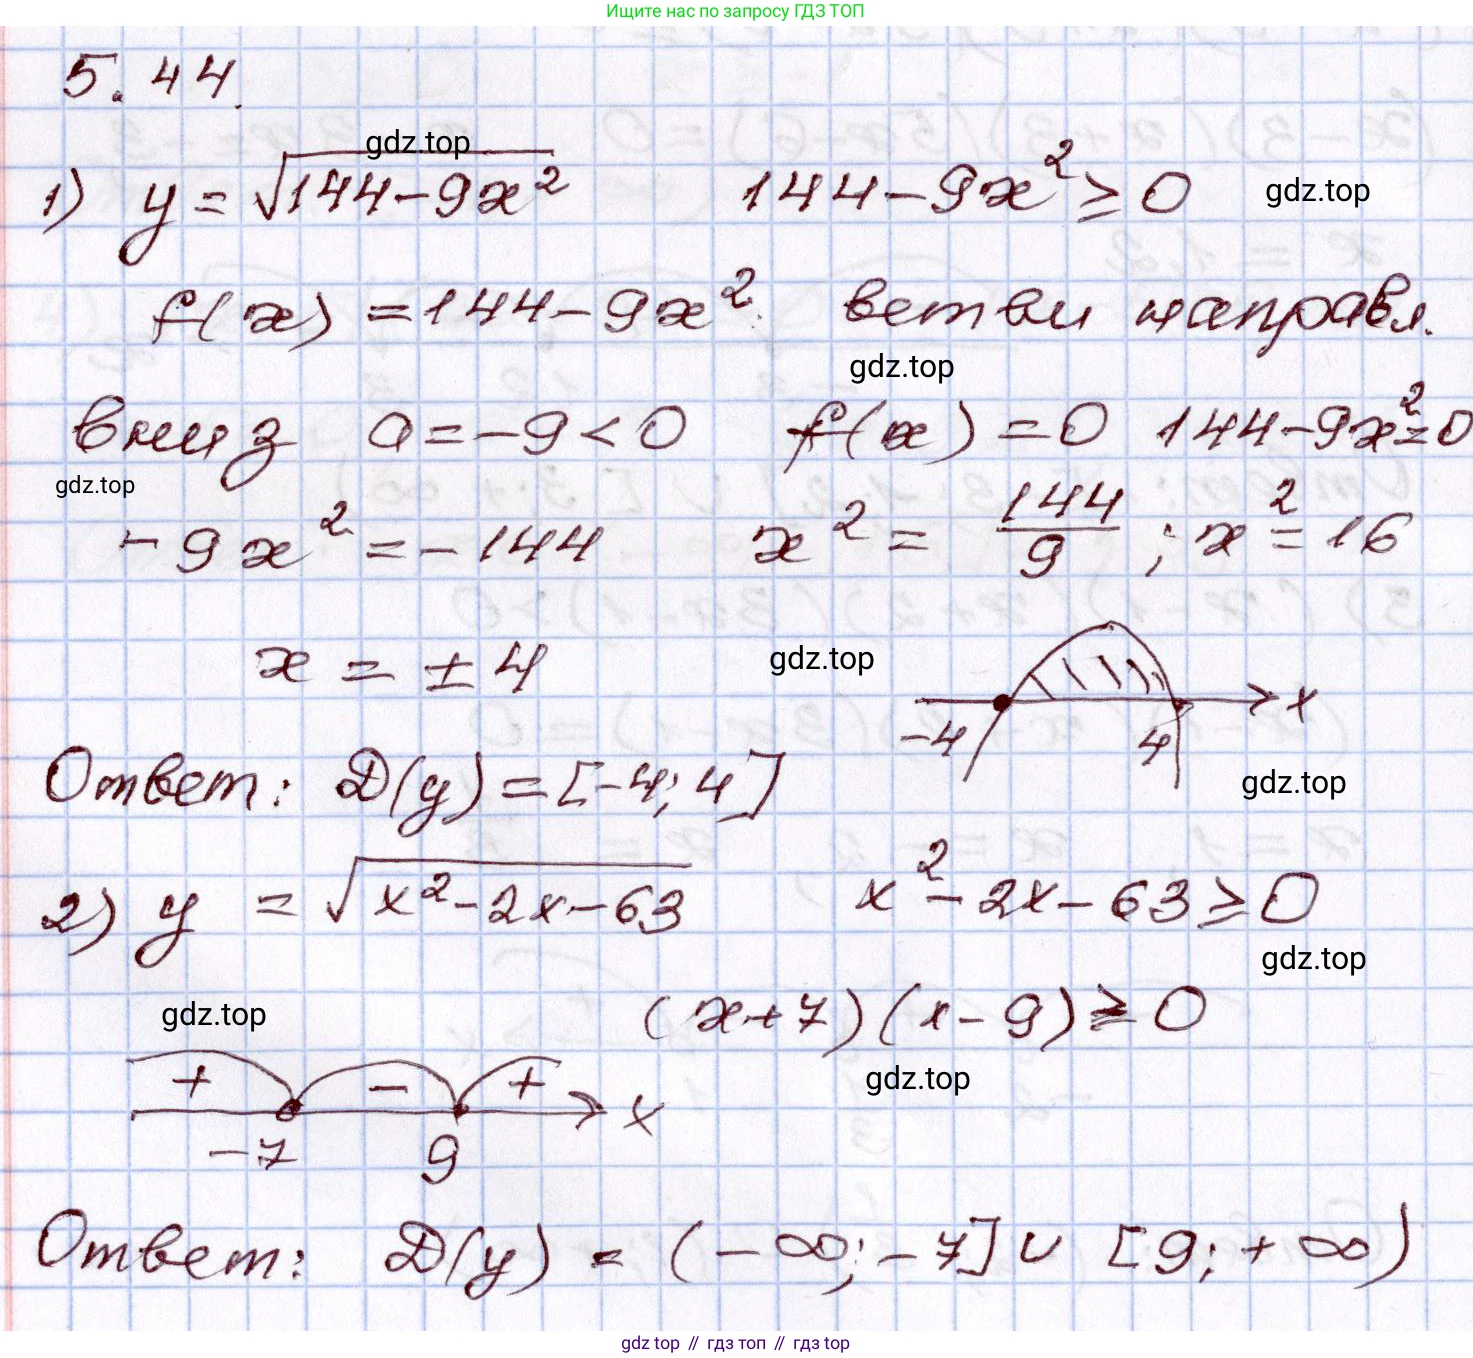 Ищите нас по запросу ГДЗ ТОП
5.44.
gdz.top
1) y = √(144-9x²) 144-9x² ≥ 0 gdz.top
f(x) = 144-9x² ветви направл.
gdz.top
вниз a = -9 < 0 f(x) = 0 144-9x² = 0
gdz.top
-9x² = -144 x² = 144/9 ; x² = 16
x = ±4 gdz.top
-4 4 x
Ответ: D(y) = [-4; 4] gdz.top
2) y = √(x²-2x-63) x²-2x-63 ≥ 0
gdz.top
gdz.top (x+7)(x-9) ≥ 0
gdz.top
+ - + x
-7 9
Ответ: D(y) = (-∞; -7] ∪ [9; +∞)
gdz top // гдз топ // гдз top